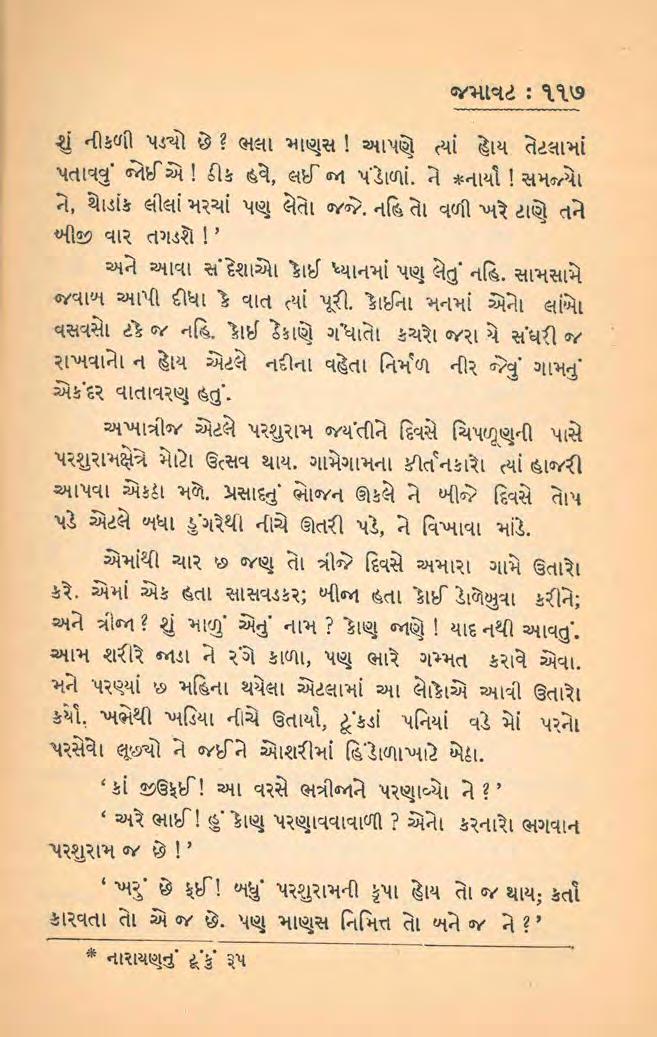 જમાવટ : ૧૧૭
શું નીકળી પડ્યો છે? ભલા માણસ! આપણે ત્યાં હોય તેટલામાં
પતાવવું જોઈએ! ઠીક હવે, લઈ જા પંડોળાં. ને *નાર્યા! સમજ્યો
ને, થોડાંક લીલાં મરચાં પણ લેતો જજે. નહિ તો વળી ખરે ટાણે તને
બીજી વાર તગડશે!’
અને આવા સંદેશાઓ કોઈ ધ્યાનમાં પણ લેતું નહિ. સામસામે
જવાબ આપી દીધા કે વાત ત્યાં પૂરી. કોઈના મનમાં એનો લાંબો
વસવસો ટકે જ નહિ. કોઈ ઠેકાણે ગંધાતો કચરો જરા યે સંઘરી જ
રાખવાનો ન હોય એટલે નદીના વહેતા નિર્મળ નીર જેવું ગામનું
એકંદર વાતાવરણ હતું.
અખાત્રીજ એટલે પરશુરામ જયંતીને દિવસે ચિપળૂણની પાસે
પરશુરામક્ષેત્રે મોટો ઉત્સવ થાય. ગામેગામના કીર્તનકારો ત્યાં હાજરી
આપવા એકઠા મળે. પ્રસાદનું ભોજન ઊકલે ને બીજે દિવસે તોપ
પડે એટલે બધા ડુંગરેથી નીચે ઊતરી પડે, ને વિખાવા માંડે.
એમાંથી ચાર છ જણ તો ત્રીજે દિવસે અમારા ગામે ઉતારો
કરે. એમાં એક હતા સાસવડકર; બીજા હતા કોઈ ડોળેબુવા કરીને;
અને ત્રીજા? શું માળું એનું નામ? કોણ જાણે! યાદ નથી આવતું.
આમ શરીરે જાડા ને રંગે કાળા, પણ ભારે ગમ્મત કરાવે એવા.
મને પરણ્યાં છ મહિના થયેલા એટલામાં આ લોકોએ આવી ઉતારો
કર્યો. ખભેથી ખડિયા નીચે ઉતાર્યા, ટૂંકડાં પનિયાં વડે મોં પરનો
પરસેવો લૂછ્યો ને જઈને ઓશરીમાં હિંડોળાખાટે બેઠા.
‘કાં જીઉફઈ! આ વરસે ભત્રીજાને પરણાવ્યો ને?’
‘અરે ભાઈ! હું કોણ પરણાવવાવાળી? એનો કરનારો ભગવાન
પરશુરામ જ છે!’
‘ખરું છે ફઈ! બધું પરશુરામની કૃપા હોય તો જ થાય; કર્તા
કારવતા તો એ જ છે. પણ માણસ નિમિત્ત તો બને જ ને?’
* નારાયણનું ટૂંકું રૂપ